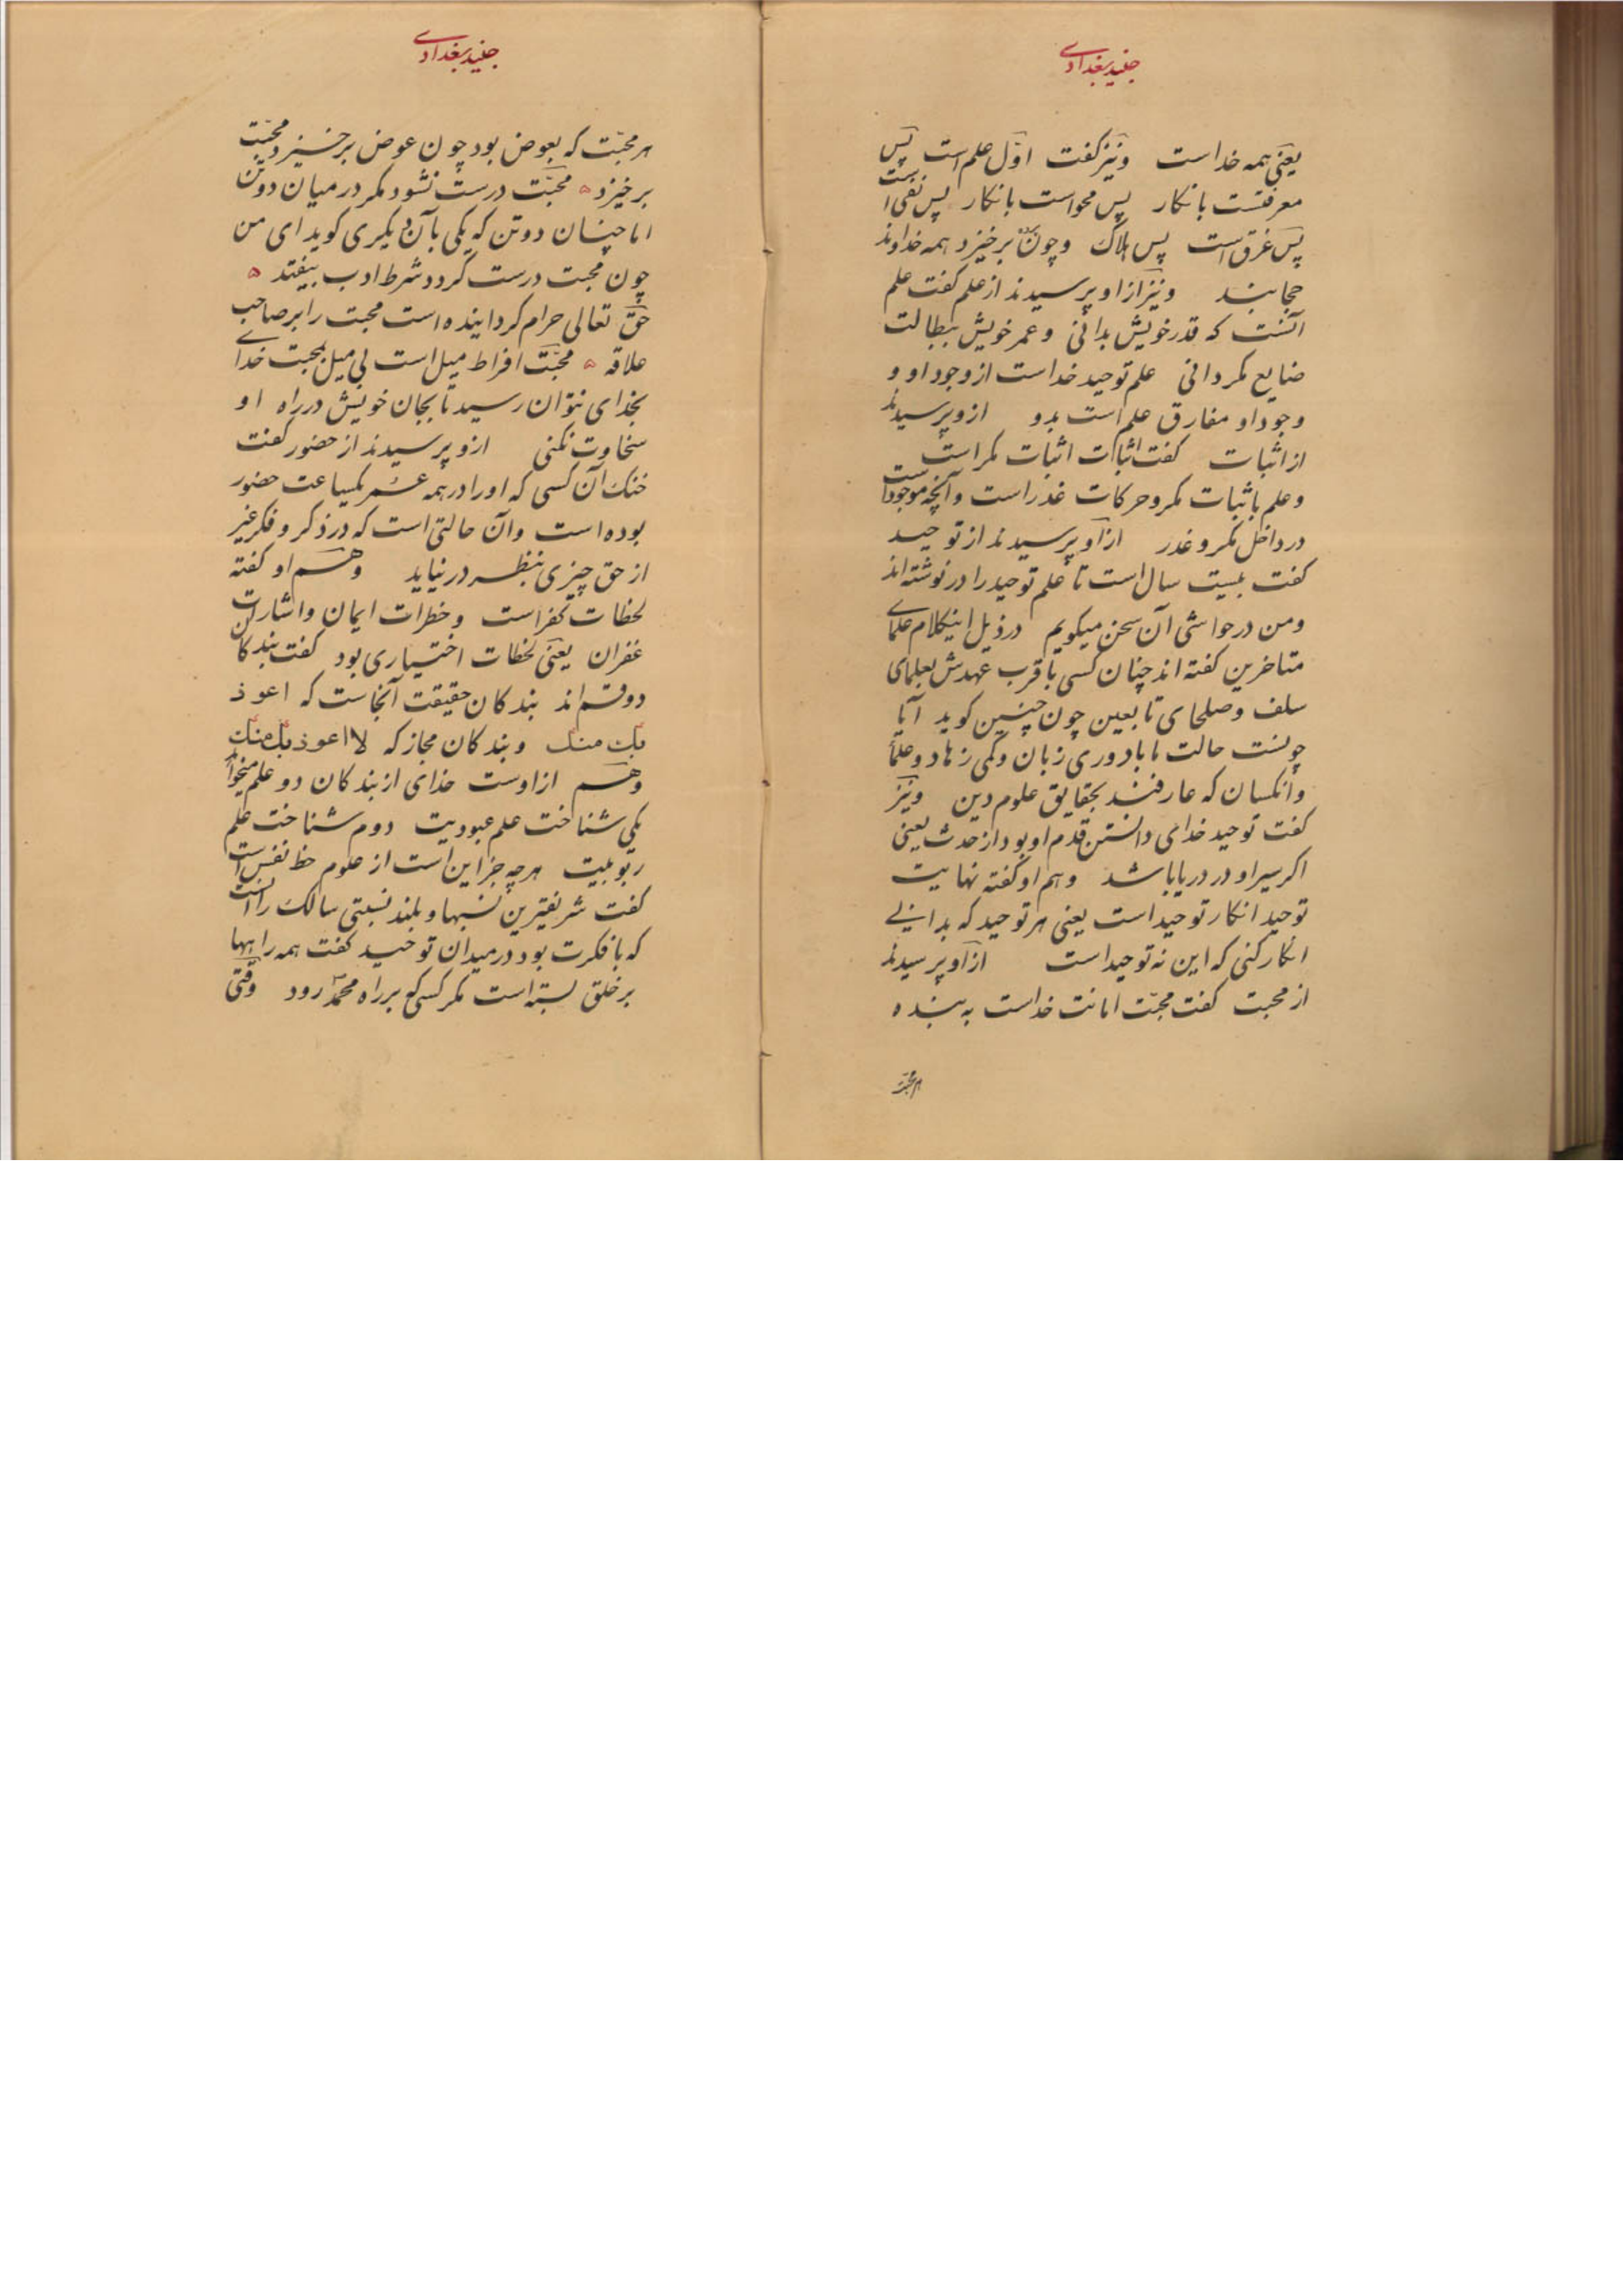 جنید بغدادی
یعنی همه خداست ونیز کفت اوّل علم است پس
معرفتست بانکار پس محواست بانکار پس نفی است
پس غرق است پس هلاک وچون پرده برخیزد همه خداوند
حجابند ونیز ازاو پرسیدند از علم کفت علم
آنست که قدر خویش بدانی وعمر خویش ببطالت
ضایع مکردانی علم توحید خداست از وجود او و
وجود او مفارق علم است بدو ازو پرسیدند
از اثبات کفت اثبات اثبات مکر است
وعلم باثبات مکر وحرکات غدر است وآنچه موجود است
درداخل مکر وغدر ازاو پرسیدند از توحید
کفت بیست سال است تا علم توحید را درنوشته اند
ومن درحواشی آن سخن میکویم درذیل اینکلام علمای
متاخرین کفته اند چنان کسی باقرب عهدش بعلمای
سلف وصلحای تابعین چون چنین کوید آیا
چونست حالت ما بادوری زبان وکمی زهاد وعلما
وانکسان که عارفند بحقایق علوم دین ونیز
کفت توحید خدای دانستن قدم او بود از حدث یعنی
اکر سیر او در دریا باشد وهم او کفته نهایت
توحید انکار توحید است یعنی هر توحید که بدانی
انکار کنی که این نه توحید است ازاو پرسیدند
از محبت کفت محبّت امانت خداست به بنده
هر محبّت
جنید بغدادی
هر محبّت که بعوض بود چون عوض برخیزد محبّت
برخیزد محبّت درست نشود مکر درمیان دوتن
اما چنان دوتن که یکی بآن دیکری کوید ای من
چون محبت درست کردد شرط ادب بیفتد
حق تعالی حرام کردانیده است محبت را بر صاحب
علاقه محبّت افراط میل است بی میل بمحبت خدای
بخدای نتوان رسید تا بجان خویش درراه او
سخاوت نکنی ازو پرسیدند از حضور کفت
خنک آن کسی که اورا درهمه عمر یکساعت حضور
بوده است وآن حالتی است که درذکر وفکر غیر
از حق چیزی بنظر درنیاید وهم او کفته
لحظات کفر است وخطرات ایمان واشارات
غفران یعنی لحظات اختیاری بود کفت بندکان
دوقسم اند بندکان حقیقت آنجاست که اعوذ
بک منک وبندکان مجاز که لا اعوذ بک منک
وهم ازاوست خدای از بندکان دو علم میخواهد
یکی شناخت علم عبودیت دوم شناخت علم
ربوبیت هرچه جز این است از علوم حظ نفس است
کفت شریفترین نسبها وبلند نسبتی سالک را آنست
که بافکرت بود درمیدان توحید کفت همه راهها
برخلق بسته است مکر کسی که برراه محمّد رود وقتی